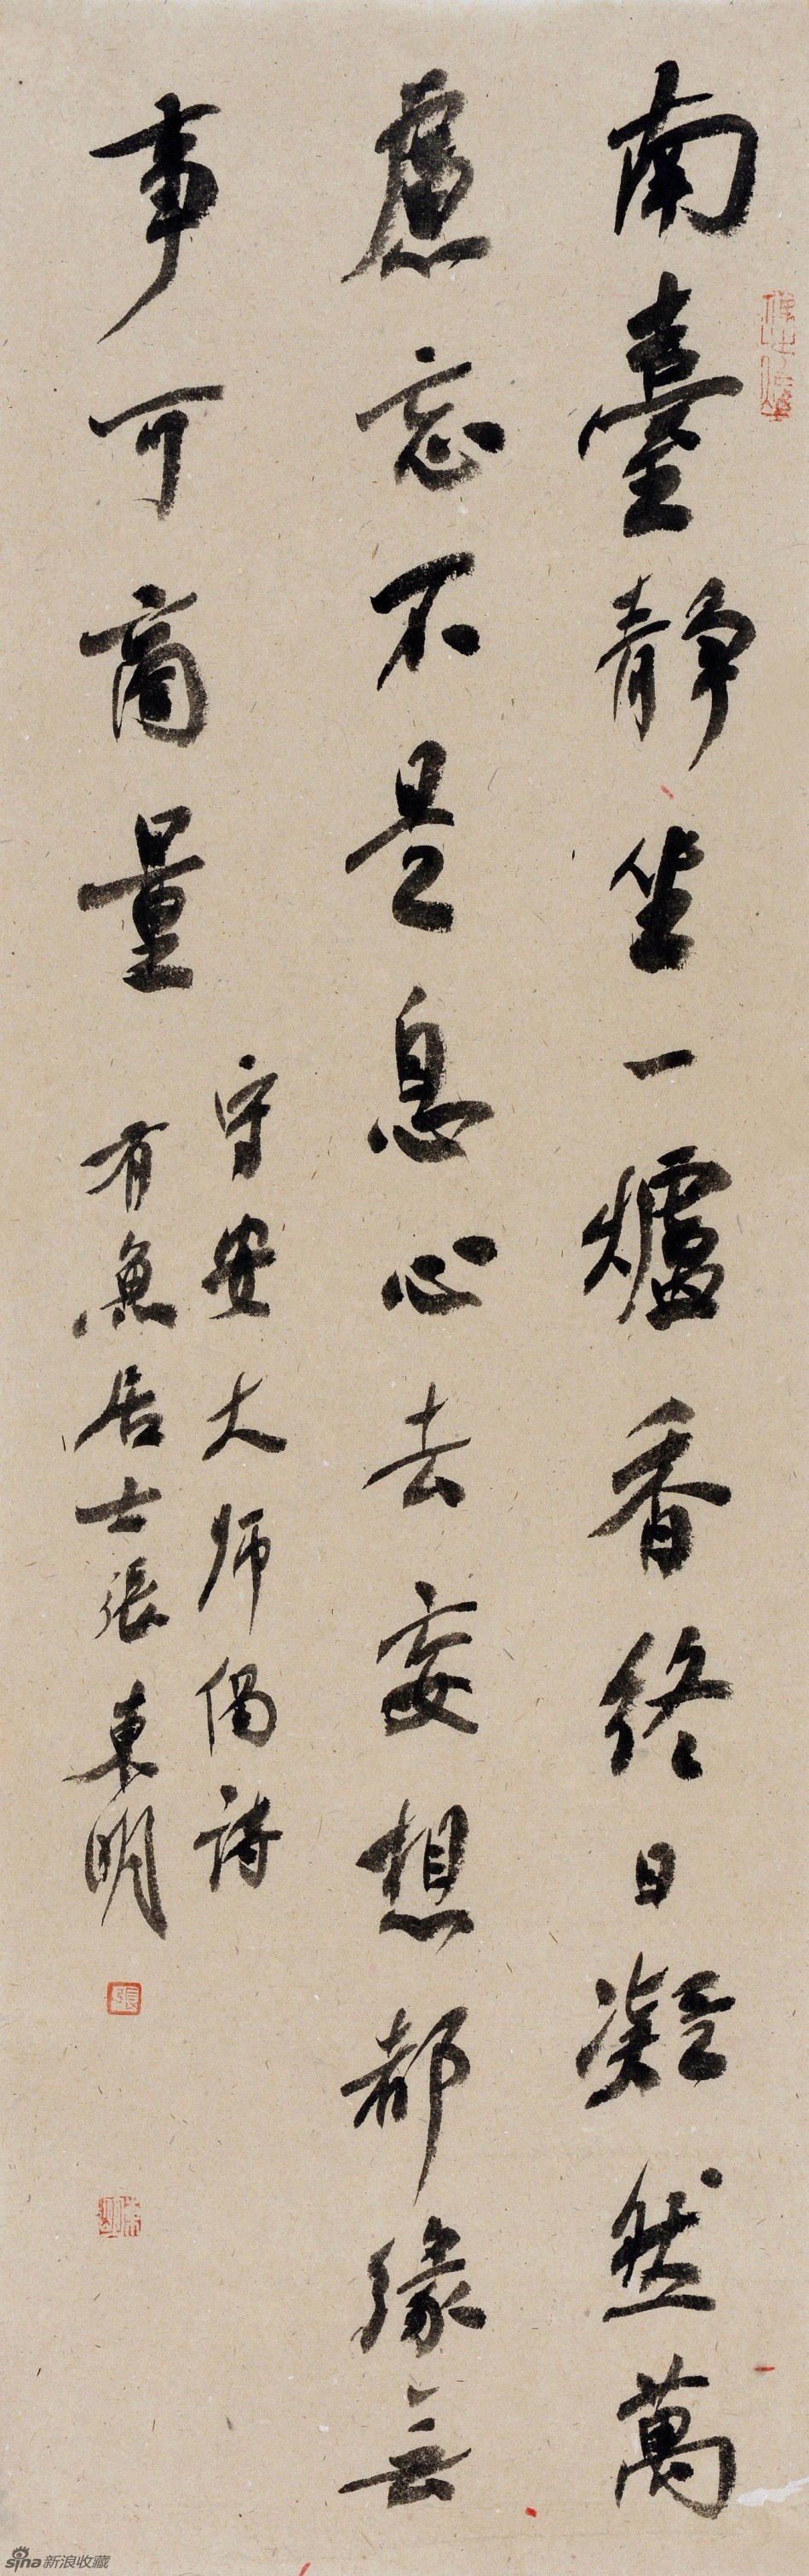 南臺靜坐一爐香終日凝然萬
慮忘不是息心去妄想都緣無
事可商量
守安大师偈詩
有魚居士張東明
張
sina新浪收藏